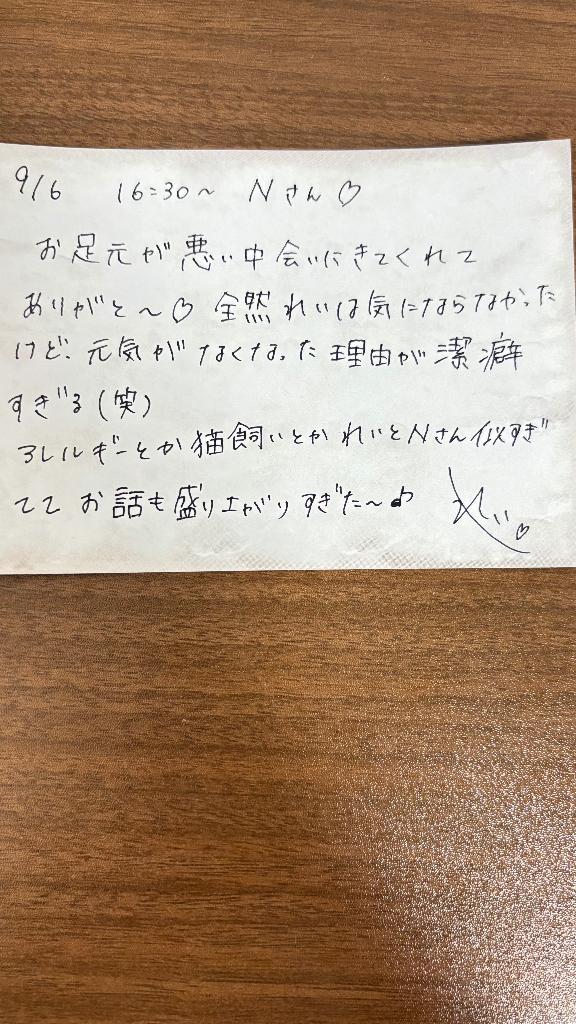 9/6 16:30〜 Nさん♡
お足元が悪い中会いにきてくれて
ありがと〜♡ 全然れいは気にならなかった
けど、元気がなくなった理由が潔癖
すぎる(笑)
アレルギーとか猫飼いとかれいとNさん似すぎ
てて お話も盛り上がりすぎた〜♪ れい♡